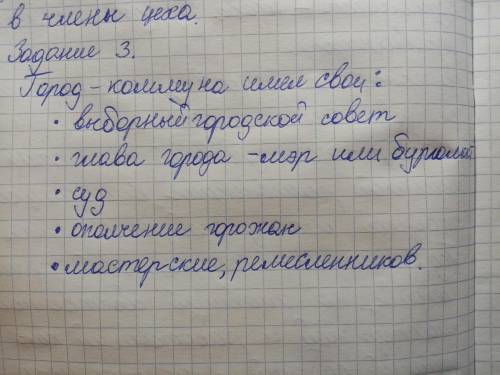 в члены цеха.
Задание 3.
Город-коммуна имел свои:
• выборный городской совет
• глава города - мэр или
• суд
• ополчение горожан
• мастерские, ремесленников.